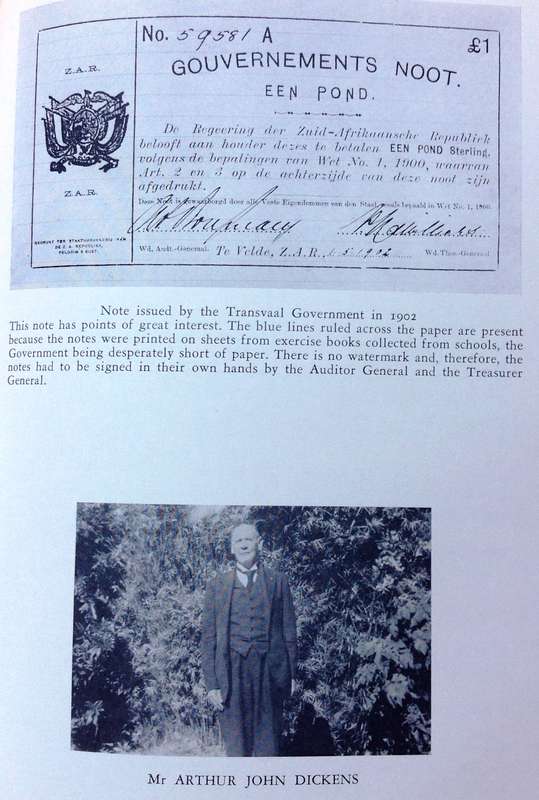 No. 59581 A £1
Z.A.R.
GOUVERNEMENTS NOOT.
EEN POND.
De Regeering der Zuid-Afrikaansche Republiek
belooft aan houder dezes te betalen EEN POND Sterling,
volgens de bepalingen van Wet No. 1, 1900, waarvan
Art. 2 en 3 op de achterzijde van deze noot zijn
afgedrukt.
Z.A.R.
Deze Noot is gewaarborgd door alle Vaste Eigendommen van den Staat, zooals bepaald in Wet No. 1, 1900.
GEDRUKT TER STAATSDRUKKERIJ VAN
DE Z. A. REPUBLIEK,
PELGRIM'S RUST.
Wd. Audt.-Generaal. Te Velde, Z.A.R. 1/5/1902 Wd. Thes.-Generaal
Note issued by the Transvaal Government in 1902
This note has points of great interest. The blue lines ruled across the paper are present
because the notes were printed on sheets from exercise books collected from schools, the
Government being desperately short of paper. There is no watermark and, therefore, the
notes had to be signed in their own hands by the Auditor General and the Treasurer
General.
Mr ARTHUR JOHN DICKENS